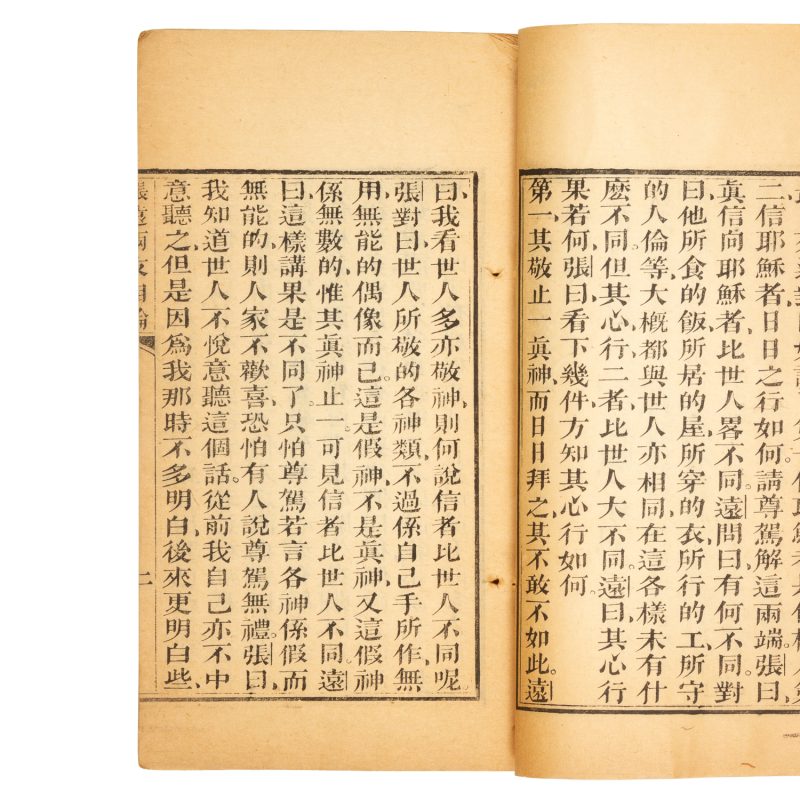 二信耶穌者、日日之行如何。請尊駕解這兩端。張曰、
眞信向耶穌者、比世人畧不同。遠問曰、有何不同。對
曰、他所食的飯、所居的屋、所穿的衣、所行的工、所守
的人倫等、大槪都與世人亦相同。在這各樣未有什
麽不同。但其心行二者、比世人大不同。遠曰、其心行
果若何。張曰、看下幾件、方知其心行如何。
第一、其敬止一眞神、而日日拜之、其不敢不如此。遠
曰、我看世人多亦敬神、則何說信者比世人不同呢。
張對曰、世人所敬的各神類、不過係自己手所作、無
用、無能的偶像而已。這是假神、不是眞神、又這假神
係無數的、惟其眞神止一。可見信者比世人不同。遠
曰、這樣講果是不同了。只怕尊駕若言各神係假而
無能的、則人家不歡喜、恐怕有人說尊駕無禮。張曰、
我知道世人不悅意聽這個話。從前我自己亦不中
意聽之、但是因爲我那時不多明白、後來更明白些、
張遠兩友相論 二